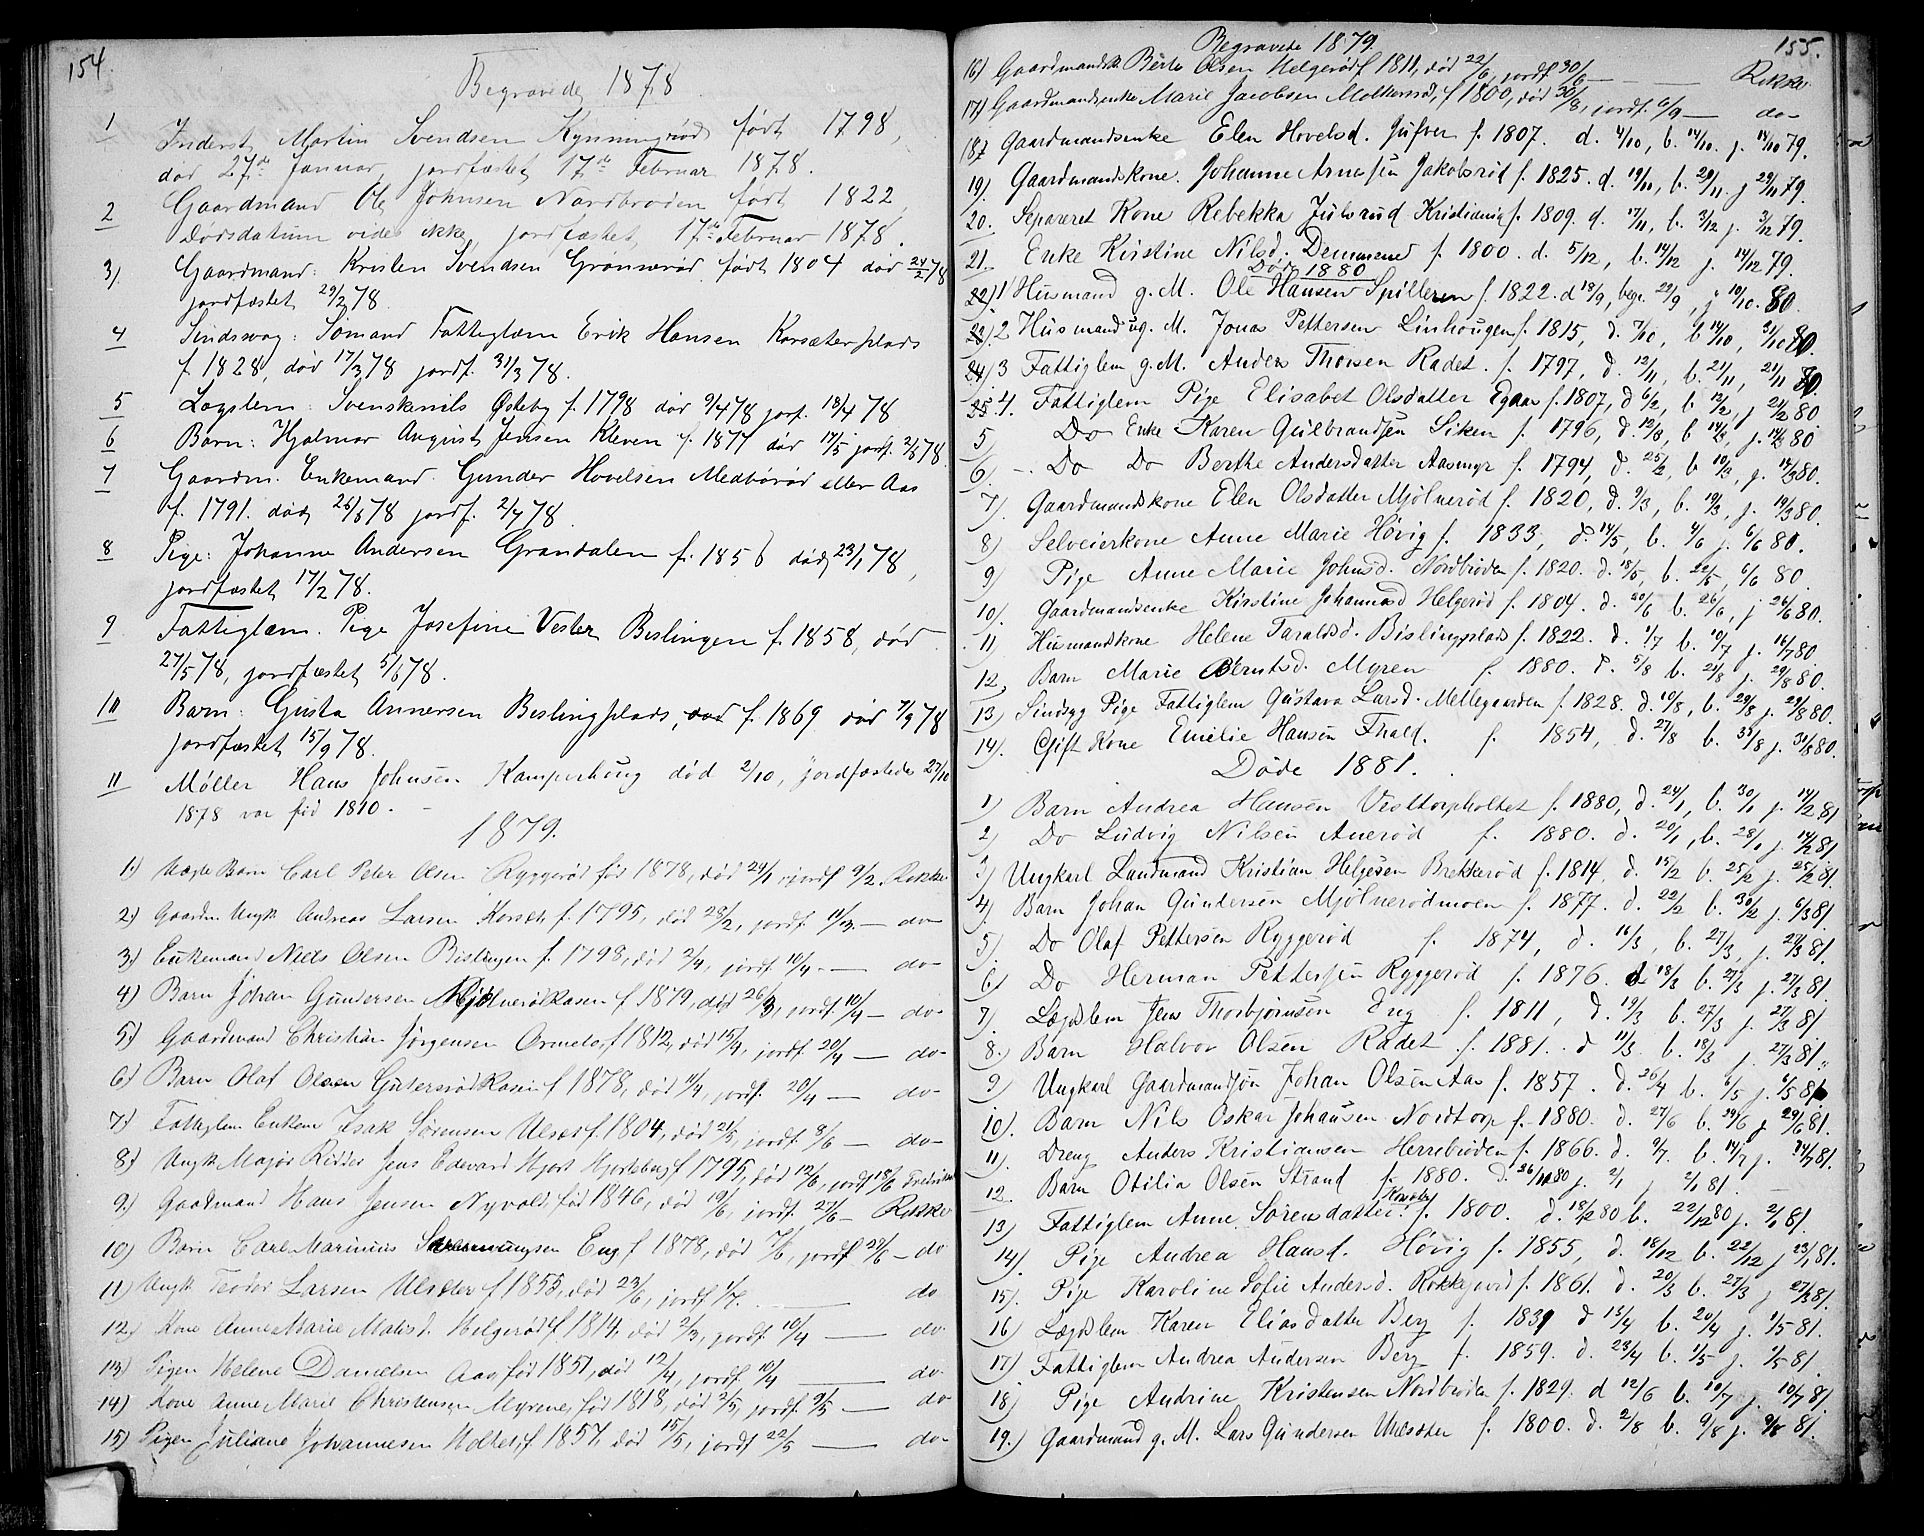 154
Begravede 1878.
1 Inderst Martin Svendsen Kynningrød født 1798,
død 27de Januar jordfæstet 17de Februar 1878.
2 Gaardmand Ole Johnsen Nordbrøden født 1822,
Dødsdatum vides ikke, jordfæstet 17de Februar 1878.
3) Gaardmand: Kristen Svendsen Grønnerød født 1804 død 24/2 78
jordfæstet 29/2 78.
4 Sindssvag: Sømand Fattiglem Erik Hansen Korsæterplads
f. 1828, død 17/3 78 jordf. 31/3 78.
5 Lægslem: Svenskenils Østeby f. 1798 død 9/4 78 jorf. 18/4 78
6 Barn: Hjalmar August Jensen Kleven f. 1877 død 17/5 jorf. 2/6 78
7 Gaardm. Enkemand Gunder Hovelsen Medbørød eller Aas
f. 1791. død 26/6 78 jordf. 2/7 78
8 Pige: Johanne Andersen Grandalen f. 1856 død 23/1 78,
jordfæstet 17/2 78.
9 Fattiglem. Pige Josefine Vester Bislingen f. 1858, død
27/5 78, jordfæstet 5/6 78.
10 Barn: Gusta Annersen Beslingplads, f. 1869 død 7/9 78
jordfæstet 15/9 78.
11 Møller Hans Johnsen Kamperhoug død 2/10, jordfæstedes 27/10
1878 var fød 1810.
1879.
1) Uægte Barn Carl Peter Olsen Ryggerød fød 1878, død 24/1 jordf 9/2. Rokke
2) Gaardm. Ungk Andreas Larsen Korsæt f. 1795, død 28/2, jordf 11/3 — do
3) Enkemand Niels Olsen Bislingen f. 1798, død 2/4, jordf 10/4 — do
4) Barn Johan Gundersen Mjølnerødkasen f 1879, død 26/3, jordf 10/4 — do
5) Gaardmand Christian Jørgensen Ormelet f 1812, død 15/4, jordf 20/4 — do
6) Barn Olaf Olsen Gutersrødkasen f 1878, død 11/4, jordf. 20/4 — do
7) Fattiglem Enkem Isak Sørensen Ulsæt f. 1804, død 21/5, jordf 8/6 — do
8) Ungk Major Ridder Jens Edevard Hjort Hjortsberg f 1795, død 12/6, jordf 18/6 Fredrikshald
9) Gaardmand Hans Jensen Nyvold, fød 1846, død 19/6, jordf. 27/6 — Rokke
10) Barn Carl Marinius Eng f 1878, død 7/6, jordf 29/6 — do
11) Ungk Teodor Larsen Ulsæter f 1855, død 23/6, jordf 1/7. — do
12) Kone Anne Marie Matisd. Helgerød f. 1814, død 2/3, jordf. 10/4 — do
13) Pigen Helene Danielsen Aas fød 1851, død 12/4, jordf 10/4 — do
14) Kone Anne Marie Christensen Myrene, fød 1818, død 2/5, jordf. 9/5 — do
15) Pigen Juliane Johannesen Holtet, f. 1857, død 15/5, jordf 22/5 — do
155.
Begravede 1879.
16) Gaardmandsk. Berte Olsen Helgerød f 1811, død 22/6, jordf 30/6 — Rokke
17) Gaardmandsenke Marie Jacobsen f 1800, død 30/8, jordf. 6/9 — do
18) Gaardmandsenke Elen Hovelsd. f. 1807. d. 4/10, b. 14/10. j. 14/10 79.
19) Gaardmandskone. Johanne Arnesen Jakobsrød f. 1825. d. 19/11, b. 29/11. j 29/11 79.
20. Separeret Kone Rebekka Julsrud Kristiania f. 1809. d. 17/11, b. 3/12 j. 3/12 79.
21. Enke Kirstine Nilsd. f. 1800. d. 5/12, b. 14/12 j. 14/12 79.
Døde 1880
22) 1 Husmand g. M. Ole Hansen Spilleren f. 1822. d 18/9, begr. 22/9, j 10/10. 80.
23) 2 Husmand ug. M. Jonas Pettersen Linhougen f. 1815, d. 7/10, b 14/10, 31/10 80.
24) 3 Fattiglem g. M. Anders Thoresen Rødet. f. 1797, d. 12/11, b. 21/11, 21/11 80.
25. 4. Fattiglem Pige Elisabet Olsdatter f. 1807, d 6/2, b. 12/2, j 24/2 80
5) Do Enke Karen Gulbrandsen Liken f. 1796, d. 12/3, b 14/3, j. 14/3 80
6) Do Do Berthe Andersdatter Aasmyr f. 1794, d. 25/2, b 10/3, j. 14/3 80.
7) Gaardmandskone Elen Olsdatter Mjølnerød f. 1820, d. 9/3, b. 19/3, j. 19/3 80.
8) Selveierkone Anne Marie Høvig f. 1833, d. 14/5, b. 4/6 j. 6/6 80.
9) Pige Anne Marie Johnsd. Nordbrøden f. 1820. d. 18/5, b. 22/5, 6/6 80.
10) Gaardmandsenke Kirstine Johannesd Helgerød f. 1804. d. 20/6 b. 26/6, j 26/6 80.
11) Husmandskone Helene Taraldsd. Bislingplads f. 1822. d. 1/7 b. 10/7 j. 16/7 80
12, Barn Marie Berntsd. Myren f. 1880. d. 5/8 b. 21/8 j. 29/8 80.
13) Sindsyg Pige Fattiglem Gustava Larsd. Mellegaarden f. 1828. d. 10/8, b. 29/8 j. 29/8 80.
14). Gift Kone Emilie Hansen Thald. f. 1854, d. 27/8 b. 31/8 j. 31/8 80.
Døde 1881.
1) Barn Andrea Hansen Vesttorpholtet f. 1880, d. 24/1, b. 30/1 j. 14/2 81
2) Do Ludvig Nilsen Auerød f. 1880. d. 20/1, b. 28/1 j. 14/2 81
3) Ungkarl Landmand Kristian Helgesen Brekkerød f. 1814, d. 15/2 b. 25/2 j. 25/2 81.
4) Barn Johan Gundersen Mjølnerødmoen f. 1877. d. 22/2 b. 30/2 j. 6/3 81.
5) Do Olaf Pettersen Ryggerød f. 1874, d. 16/3, b. 27/3, j. 27/3 81.
6) Do Herman Pettersen Ryggerød f. 1876. d. 18/3 b. 27/3 j. 27/3 81.
7) Lægdslem Jens Thorbjørnsen Eng f. 1811, d. 19/3 b. 27/3 j. 27/3 81
8.) Barn Halvor Olsen Rødet f. 1881. d 11/3 b. 18/3 j. 27/3 81
9) Ungkarl Gaardmandsøn Johan Olsen Aas f. 1857. d. 26/4 b. 6/5 j. 6/5 81
10). Barn Nils Oskar Johansen Nordtorp f. 1880. d. 27/6 b. 29/6 j 29/6 81.
11) Dreng Anders Kristiansen Herrebrøden f. 1866. d. 9/7. b. 14/7 j. 24/7 81.
12. Barn Otilia Olsen Strand f. 1880. d. 26/12 80 j. 2/1 j 2/1 81.
13) Fattiglem Anne Sørensdatter Korsæt f. 1800. d. 18/12 80 b. 22/12 80 j. 2/1 81.
14) Pige Andrea Hansd. Høvig f. 1855, d. 18/12 b. 22/12 j 23/1 81.
15). Pige Karoline Sofie Andersd. Rokkejord f. 1861. d. 20/3 b. 27/3 j 27/3 81.
16) Lægdslem Karen Eliasdatter Berg f. 1839 d 13/4 b. 20/4 j. 1/5 81.
17) Fattiglem Andrea Andersen Berg f. 1859. d. 23/4 b. 1/5 j. 1/5 81.
18) Pige Andrine Kristensen Nordbrøden f. 1829. d 12/6 b. 10/7 j. 10/7 81.
19.) Gaardmand g. M. Lars Gundersen Ulsæter f. 1800. d. 2/8 b. 9/8 j. 9/8 81.